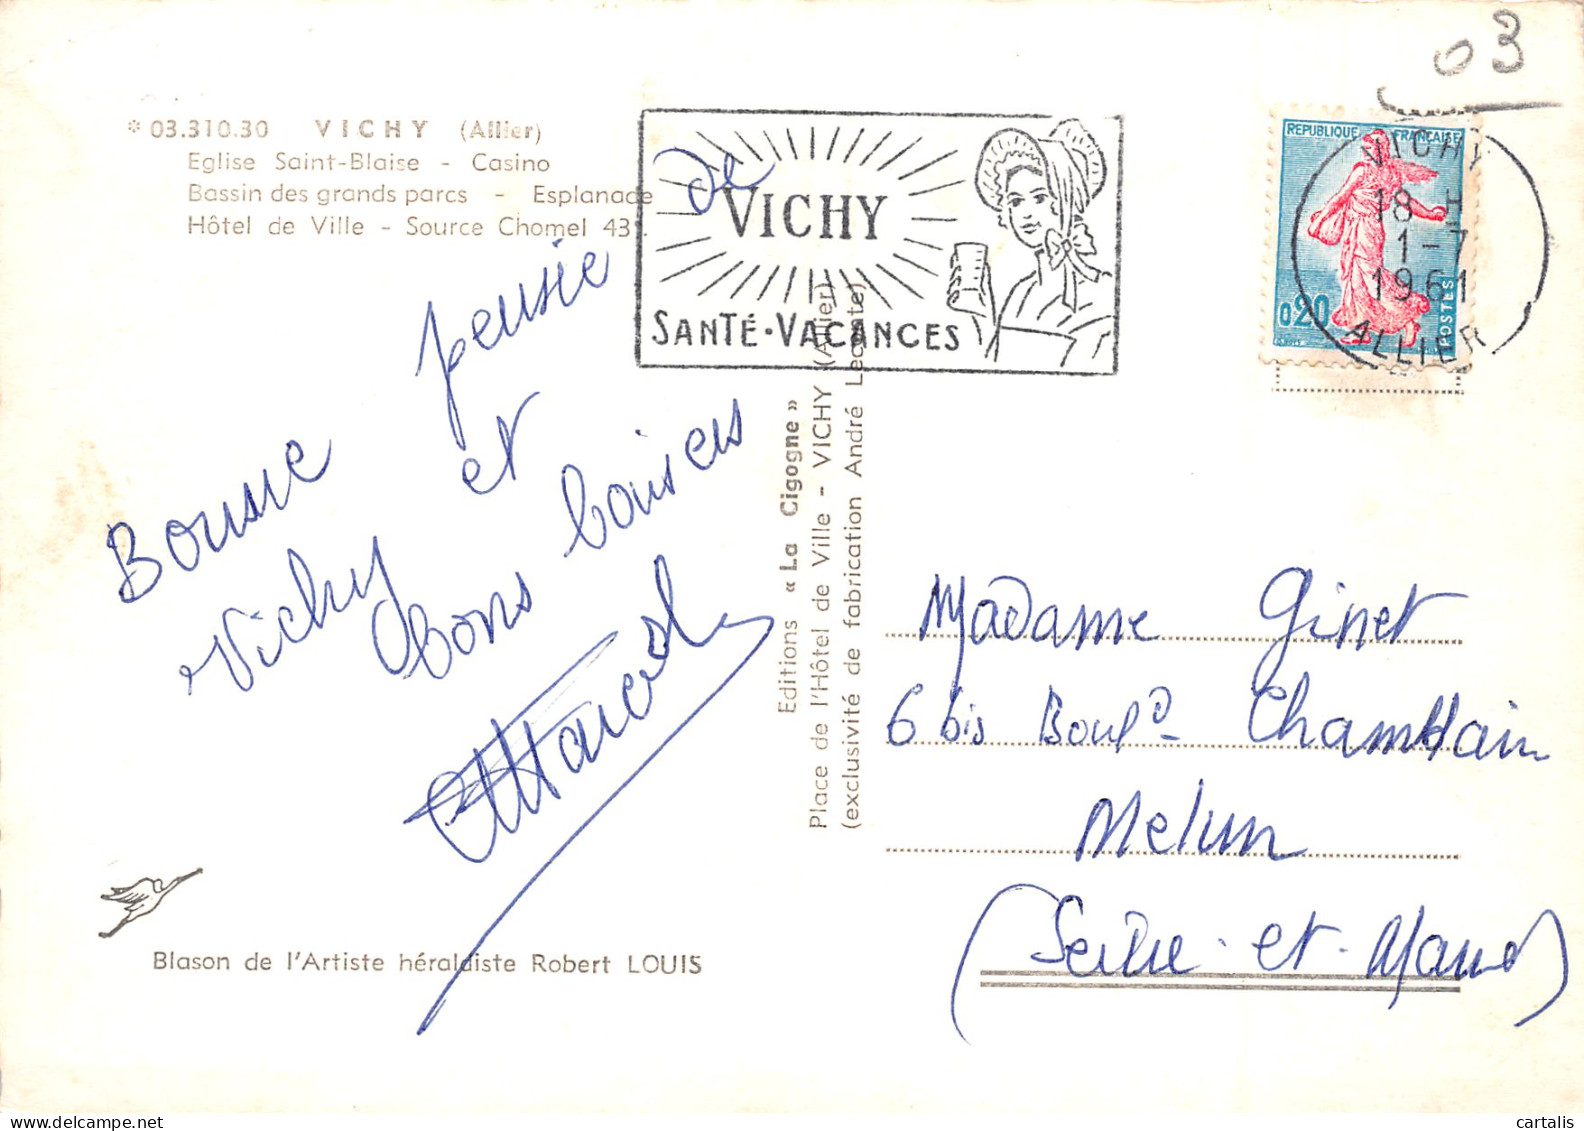 03
* 03.310.30 VICHY (Allier)
Eglise Saint-Blaise - Casino
Bassin des grands parcs - Esplanade
Hôtel de Ville - Source Chomel 43°.
VICHY
SANTÉ·VACANCES
REPUBLIQUE FRANÇAISE
0,20
POSTES
VICHY
18 H
1-7
1961
ALLIER
Bonne pensée de
Vichy et
bons baisers
Editions « La Cigogne »
Place de l'Hôtel de Ville - VICHY (Allier)
(exclusivité de fabrication André Leconte)
Madame Ginet
6 bis Boulᵈ Chamblain
Melun
(Seine-et-Marne)
Blason de l'Artiste héraldiste Robert LOUIS
cartalis